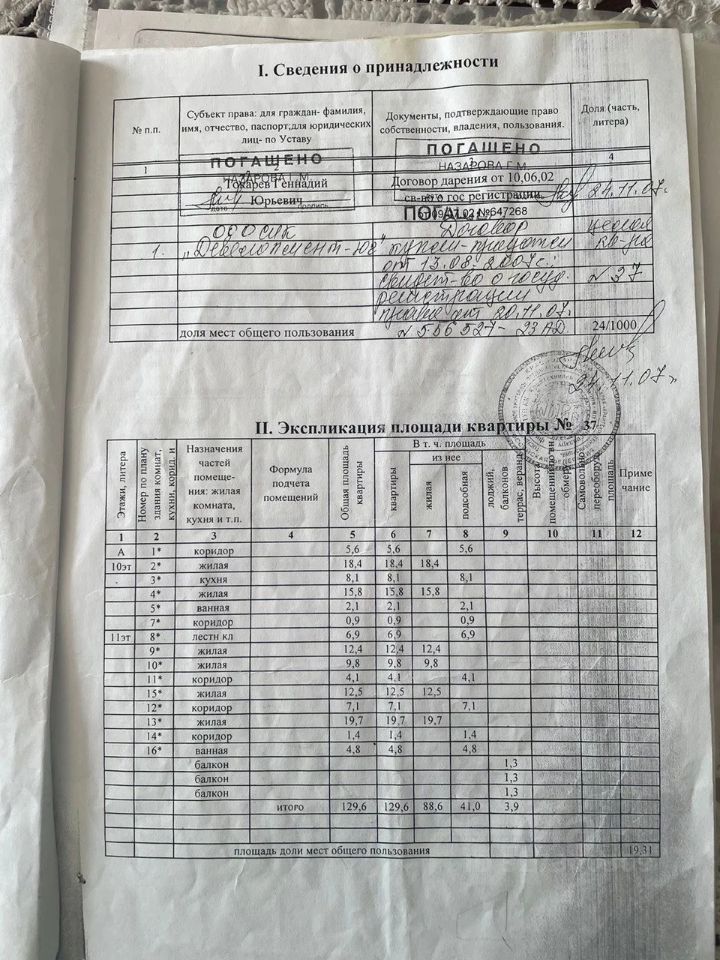 I. Сведения о принадлежности
№ п.п.
Субъект права: для граждан- фамилия, имя, отчество, паспорт;для юридических лиц- по Уставу
Документы, подтверждающие право собственности, владения, пользования.
Доля (часть, литера)
1 2 3 4
ПОГАШЕНО
НАЗАРОВА Г.М.
ПОГАШЕНО
НАЗАРОВА Г.М.
Токарев Геннадий
Договор дарения от 10,06,02
Юрьевич
св-во о гос регистрации
24.11.07.
№647268
ООО
Договор
целая
1. „Девелопмент-Юг"
купли-продажи
кв-ра
от 13.08.2007г.;
свидет-во о госуд.
№ 37
регистрации
права от 20.11.07.
доля мест общего пользования
№ 556527- 23 АД
24/1000
24.11.07г
II. Экспликация площади квартиры № 37
Этажи, литера
Номер по плану здания комнат, кухни, корид. и
Назначения частей помеще- ния: жилая комната, кухня и т.п.
Формула подчета помещений
Общая площадь квартиры
В т. ч. площадь
из нее
квартиры
жилая
подсобная
лоджий, балконов террас, веранд
Высота помещений по вн обмеру
Самовольно переоборуд. площадь
Приме чание
1 2 3 4 5 6 7 8 9 10 11 12
А 1* коридор 5,6 5,6 5,6
10эт 2* жилая 18,4 18,4 18,4
3* кухня 8,1 8,1 8,1
4* жилая 15,8 15,8 15,8
5* ванная 2,1 2,1 2,1
7* коридор 0,9 0,9 0,9
11эт 8* лестн кл 6,9 6,9 6,9
9* жилая 12,4 12,4 12,4
10* жилая 9,8 9,8 9,8
11* коридор 4,1 4,1 4,1
15* жилая 12,5 12,5 12,5
12* коридор 7,1 7,1 7,1
13* жилая 19,7 19,7 19,7
14* коридор 1,4 1,4 1,4
16* ванная 4,8 4,8 4,8
балкон 1,3
балкон 1,3
балкон 1,3
итого 129,6 129,6 88,6 41,0 3,9
площадь доли мест общего пользования 19,31